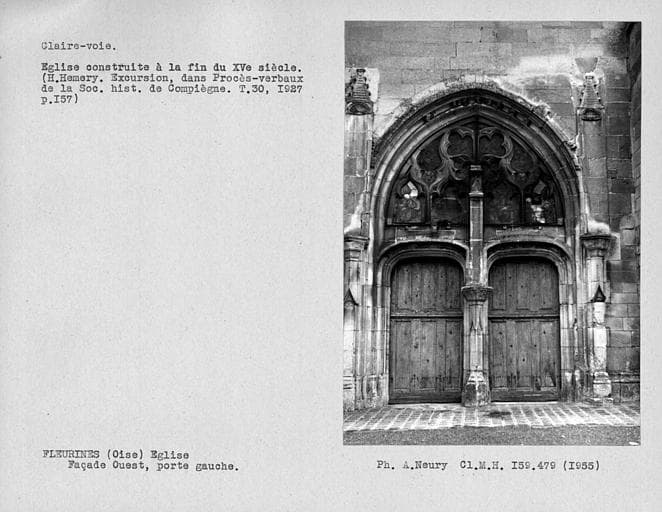 Claire-voie.
Eglise construite à la fin du XVe siècle.
(H.Hemery. Excursion, dans Procès-verbaux
de la Soc. hist. de Compiègne. T.30, I927
p.I57)
FLEURINES (Oise) Eglise
Façade Ouest, porte gauche.
Ph. A.Neury Cl.M.H. I59.479 (I955)